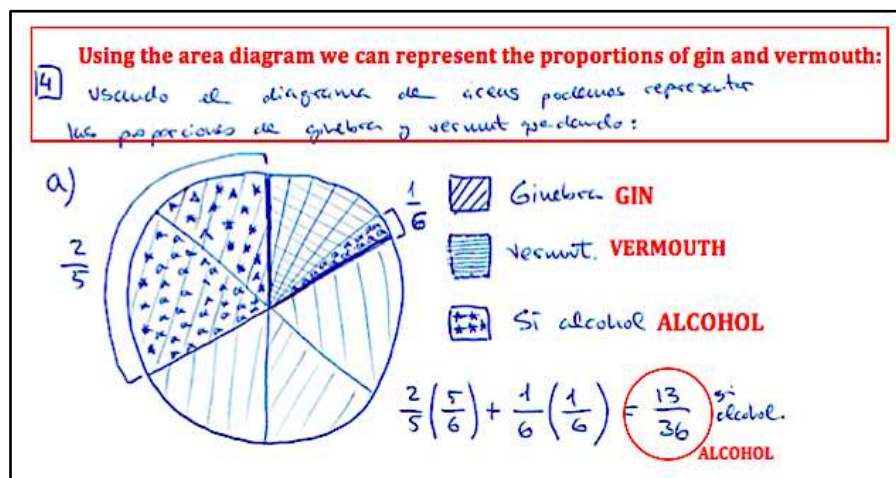 Using the area diagram we can represent the proportions of gin and vermouth:
4 usando el diagrama de áreas podemos representar
las proporciones de ginebra y vermut quedando:
a)
2/5
1/6
Ginebra GIN
Vermut. VERMOUTH
Si alcohol ALCOHOL
2/5 (5/6) + 1/6 (1/6) = 13/36 si alcohol.
ALCOHOL